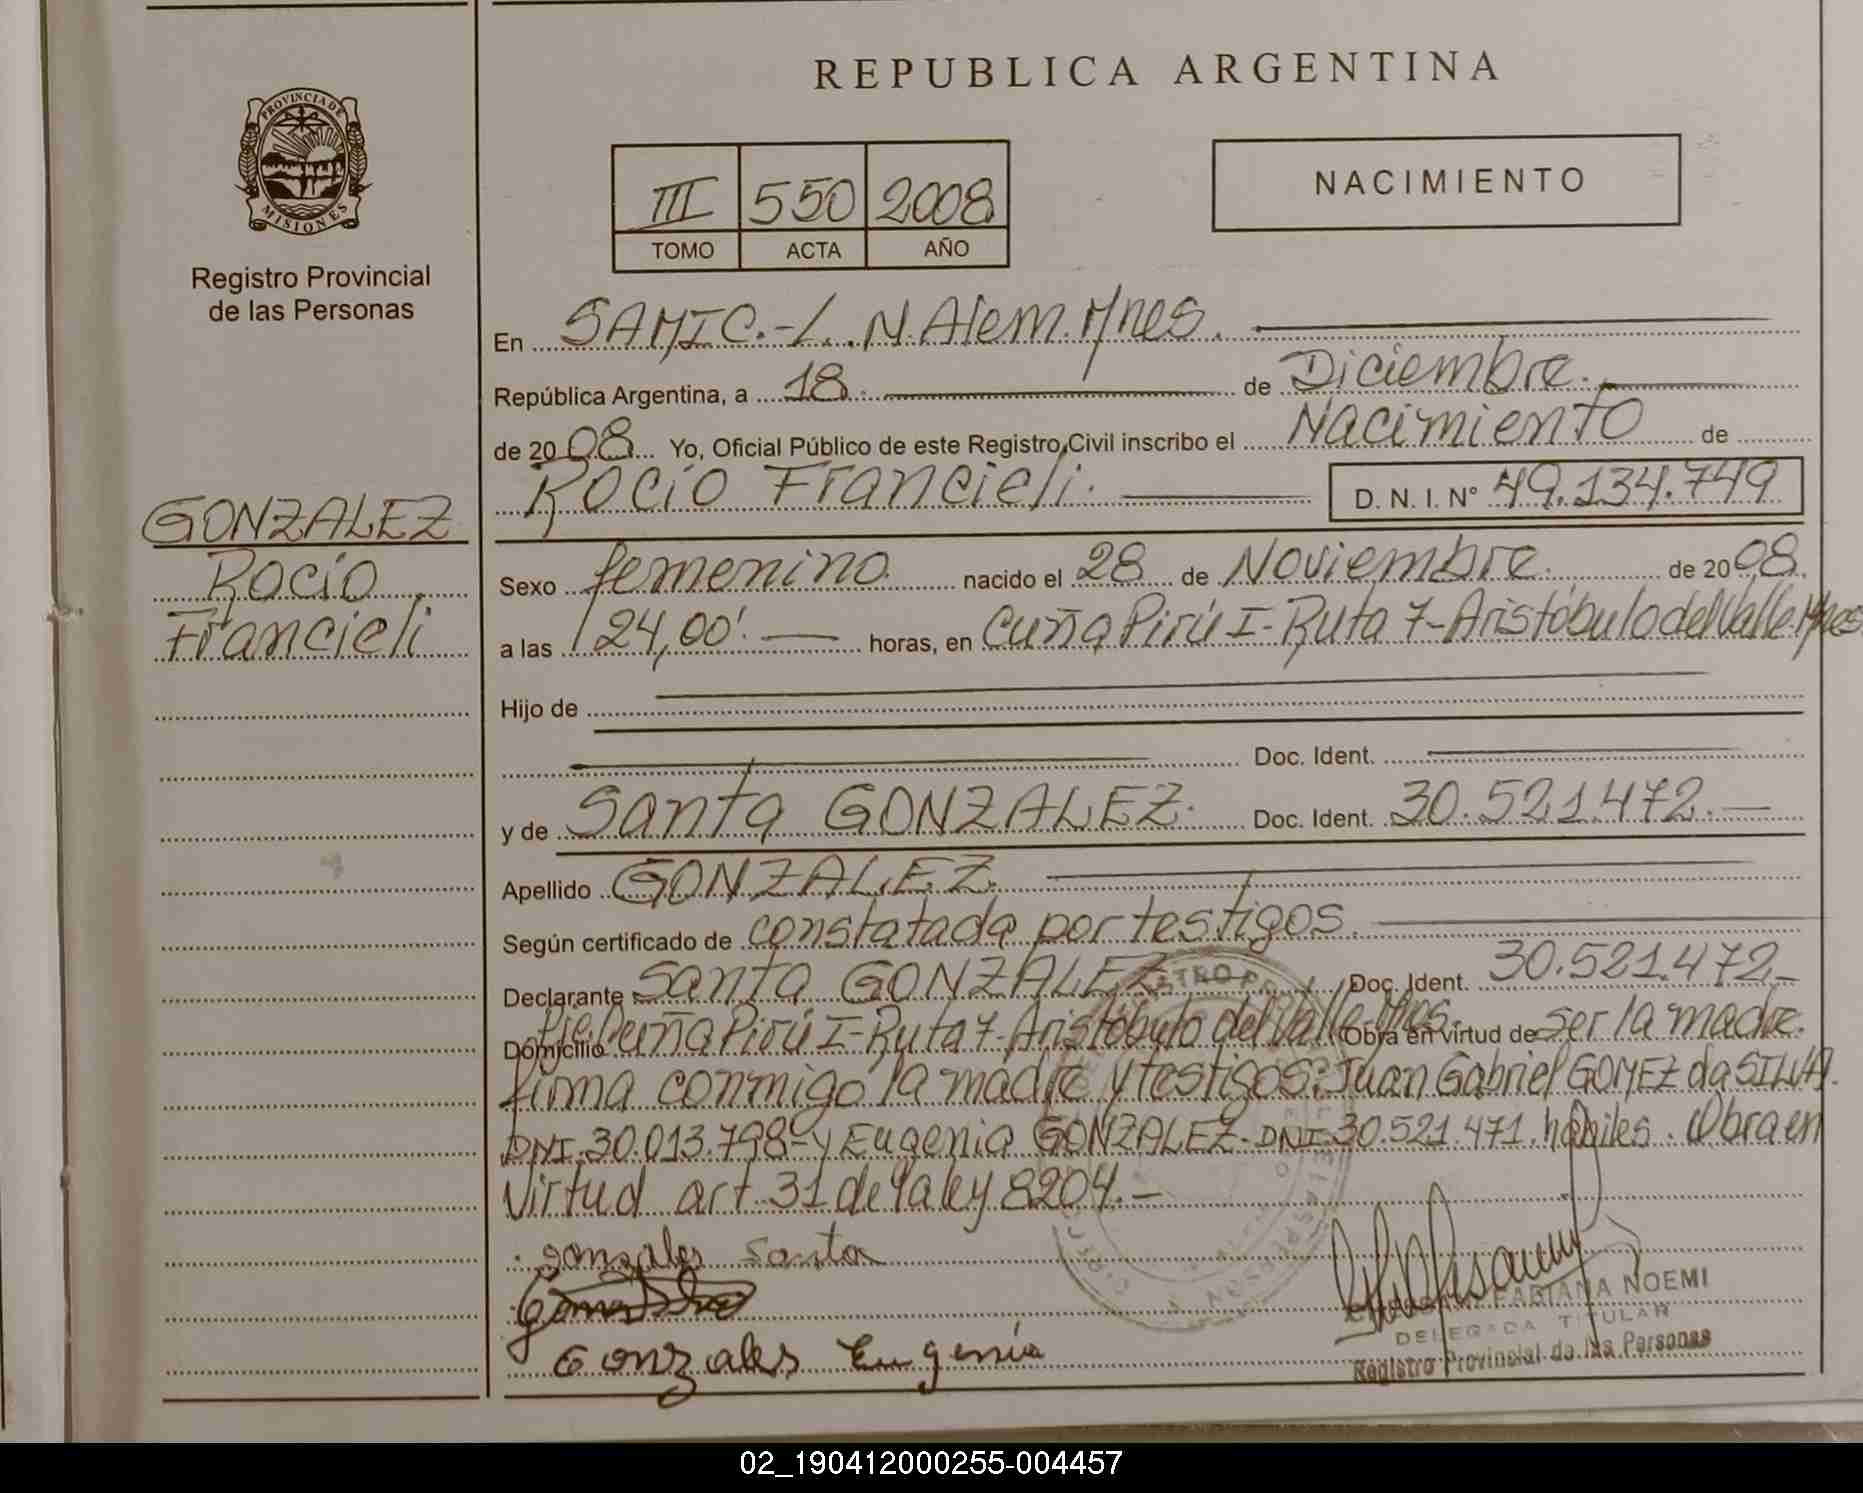 REPUBLICA ARGENTINA
PROVINCIA DE
MISIONES
Registro Provincial
de las Personas
III 550 2008
TOMO ACTA AÑO
NACIMIENTO
En SAMIC.-L.N.Alem.Mnes.
República Argentina, a 18. de Diciembre.
de 2008 Yo, Oficial Público de este Registro Civil inscribo el Nacimiento de
Rocío Francieli. D. N. I. N° 49.134.749
GONZALEZ
Rocío
Francieli
Sexo femenino nacido el 28 de Noviembre. de 2008.
a las 24,00'. horas, en Cuña Pirú I-Ruta 7-Aristóbulo del Valle.Mnes
Hijo de
Doc. Ident.
y de Santa GONZALEZ. Doc. Ident. 30.521.472.—
Apellido GONZALEZ.
Según certificado de constatada por testigos.
Declarante Santa GONZALEZ Doc. Ident. 30.521.472.-
Domicilio Cuña Pirú I-Ruta 7-Aristóbulo del Valle Mnes. Obra en virtud de ser la madre.
firma conmigo la madre y testigos: Juan Gabriel GOMEZ da SILVA.
DNI.30.013.798-y Eugenia GONZALEZ-DNI-30.521.471.hábiles. Obra en
virtud art.31 de la ley 8204.—
gonzales Santa
Gonzales Eugenia
FABIANA NOEMI
DELEGADA TITULAR
Registro Provincial de las Personas
02_190412000255-004457